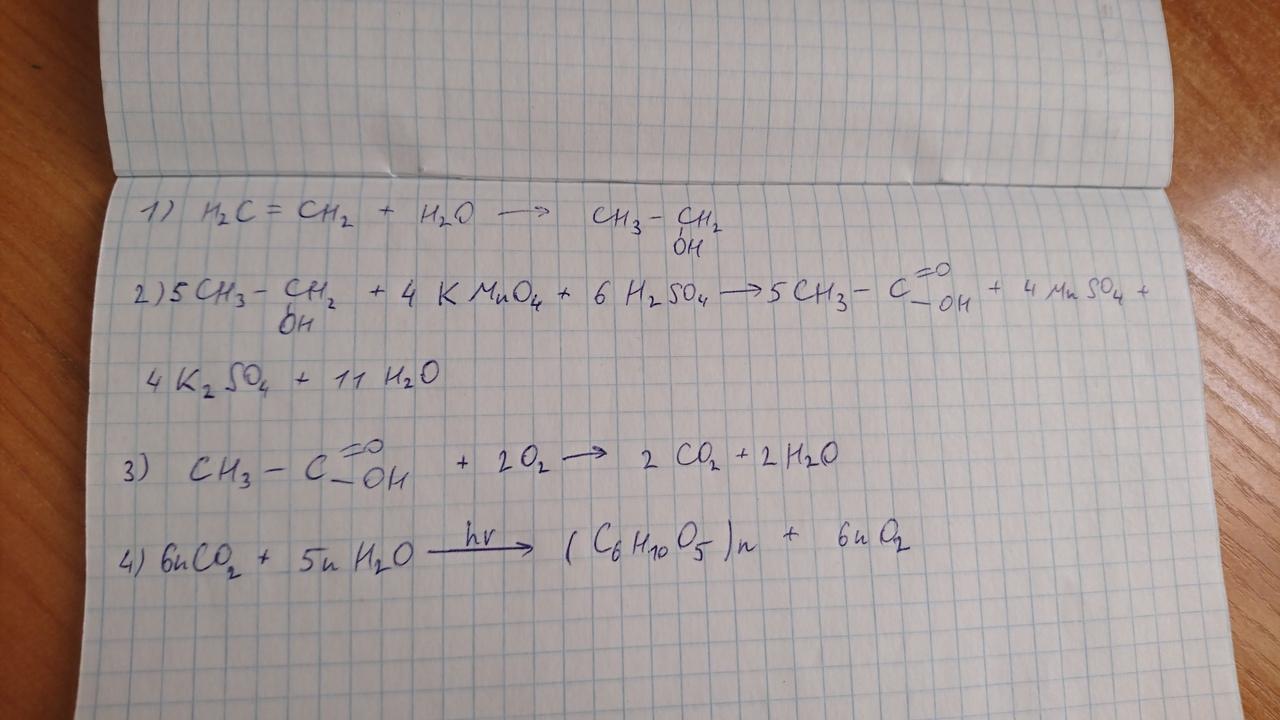 1) H₂C = CH₂ + H₂O → CH₃ – CH₂
OH
2) 5 CH₃ – CH₂ + 4 KMnO₄ + 6 H₂SO₄ → 5 CH₃ – C =O –OH + 4 MnSO₄ +
OH
4 K₂SO₄ + 11 H₂O
3) CH₃ – C =O –OH + 2O₂ → 2 CO₂ + 2 H₂O
4) 6nCO₂ + 5n H₂O hv → (C₆H₁₀O₅)n + 6n O₂